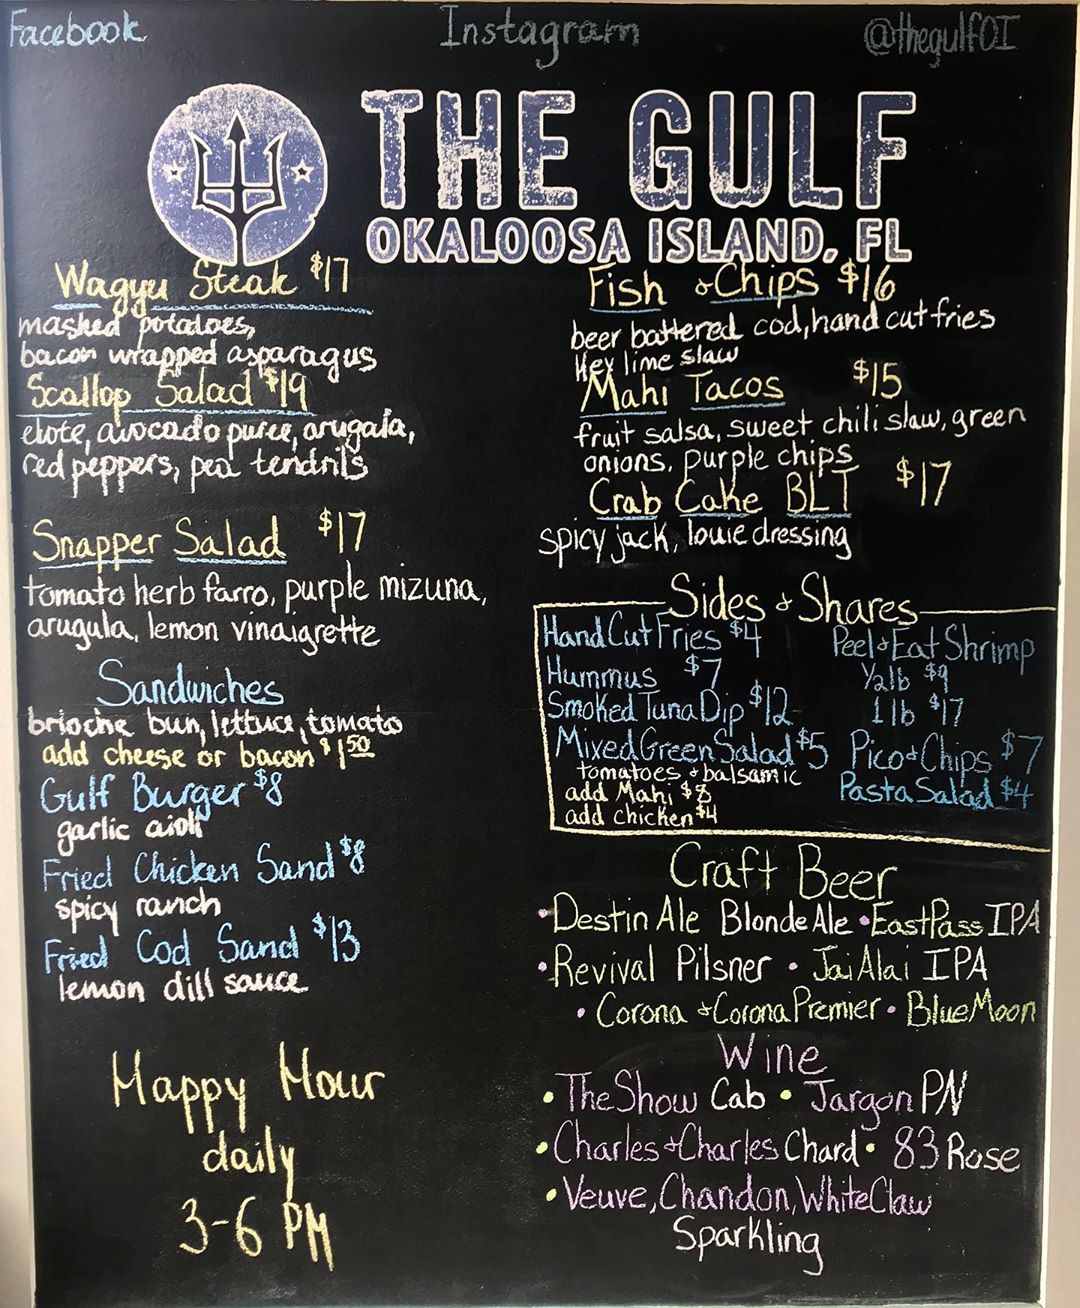 Facebook
Instagram
@thegulfOI
THE GULF
OKALOOSA ISLAND, FL
Wagyu Steak $17
mashed potatoes,
bacon wrapped asparagus
Scallop Salad $19
elote, avocado puree, arugala,
red peppers, pea tendrils
Snapper Salad $17
tomato herb farro, purple mizuna,
arugula, lemon vinaigrette
Sandwiches
brioche bun, lettuce, tomato
add cheese or bacon $1.50
Gulf Burger $8
garlic aioli
Fried Chicken Sand $8
spicy ranch
Fried Cod Sand $13
lemon dill sauce
Happy Hour
daily
3-6 PM
Fish & Chips $16
beer battered cod, hand cut fries
Key lime slaw
Mahi Tacos $15
fruit salsa, sweet chili slaw, green
onions, purple chips
Crab Cake BLT $17
spicy jack, louie dressing
Sides & Shares
Hand Cut Fries $4
Hummus $7
Smoked Tuna Dip $12
Mixed Green Salad $5
tomatoes & balsamic
add Mahi $8
add chicken $4
Peel & Eat Shrimp
1/2 lb $9
1 lb $17
Pico & Chips $7
Pasta Salad $4
Craft Beer
• Destin Ale Blonde Ale • East Pass IPA
• Revival Pilsner • Jai Alai IPA
• Corona & Corona Premier • Blue Moon
Wine
• The Show Cab • Jargon PN
• Charles & Charles Chard • 83 Rose
• Veuve, Chandon, White Claw
Sparkling